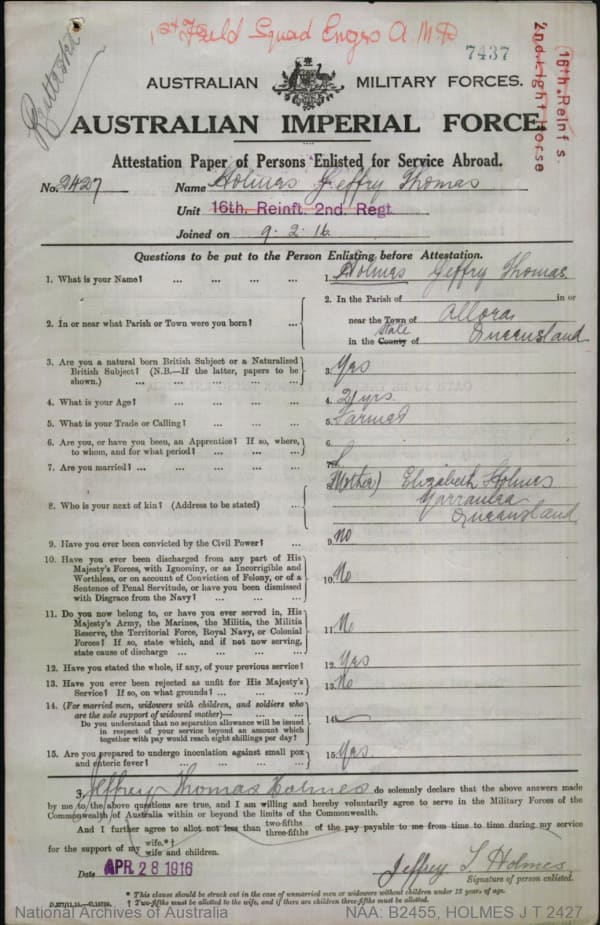 1st Field Squad Engrs A.M.D
7437
16th. Reinf s.
2nd. Light Horse
AUSTRALIAN MILITARY FORCES.
AUSTRALIAN IMPERIAL FORCE.
Attestation Paper of Persons Enlisted for Service Abroad.
No. 2427 Name Holmes Jeffry Thomas
Unit 16th. Reinft. 2nd. Regt.
Joined on 9.2.16
Questions to be put to the Person Enlisting before Attestation.
1. What is your Name? ... ... ... ... 1. Holmes Jeffry Thomas
2. In or near what Parish or Town were you born? ... 2. In the Parish of in or
near the Town of Allora
in the County State of Queensland
3. Are you a natural born British Subject or a Naturalized
British Subject? (N.B.—If the latter, papers to be
shown.) ... ... ... ... ... 3. Yes
4. What is your Age? ... ... ... ... 4. 21 yrs.
5. What is your Trade or Calling? ... ... ... 5. Farmer
6. Are you, or have you been, an Apprentice? If so, where,
to whom, and for what period? ... ... ... 6.
7. Are you married? ... ... ... ... ... 7. S
8. Who is your next of kin? (Address to be stated) ... 8. (Mother) Elizabeth Holmes
Yarranlea
Queensland
9. Have you ever been convicted by the Civil Power? ... 9. No
10. Have you ever been discharged from any part of His
Majesty's Forces, with Ignominy, or as Incorrigible and
Worthless, or on account of Conviction of Felony, or of a
Sentence of Penal Servitude, or have you been dismissed
with Disgrace from the Navy? ... ... ... 10. No
11. Do you now belong to, or have you ever served in, His
Majesty's Army, the Marines, the Militia, the Militia
Reserve, the Territorial Force, Royal Navy, or Colonial
Forces? If so, state which, and if not now serving,
state cause of discharge ... ... ... ... 11. No
12. Have you stated the whole, if any, of your previous service? 12. Yes
13. Have you ever been rejected as unfit for His Majesty's
Service? If so, on what grounds? ... ... ... 13. No
14. (For married men, widowers with children, and soldiers who
are the sole support of widowed mother)— ... ...
Do you understand that no separation allowance will be issued
in respect of your service beyond an amount which
together with pay would reach eight shillings per day? 14.
15. Are you prepared to undergo inoculation against small pox
and enteric fever? ... ... ... ... ... 15. Yes.
I, Jeffry Thomas Holmes do solemnly declare that the above answers made
by me to the above questions are true, and I am willing and hereby voluntarily agree to serve in the Military Forces of the
Commonwealth of Australia within or beyond the limits of the Commonwealth.
And I further agree to allot not less than two-fifths three-fifths of the pay payable to me from time to time during my service
for the support of my wife.*† wife and children.
Date APR 28 1916 Jeffry T Holmes
Signature of person enlisted.
* This clause should be struck out in the case of unmarried men or widowers without children under 18 years of age.
† Two-fifths must be allotted to the wife, and if there are children three-fifths must be allotted.
National Archives of Australia NAA: B2455, HOLMES J T 2427